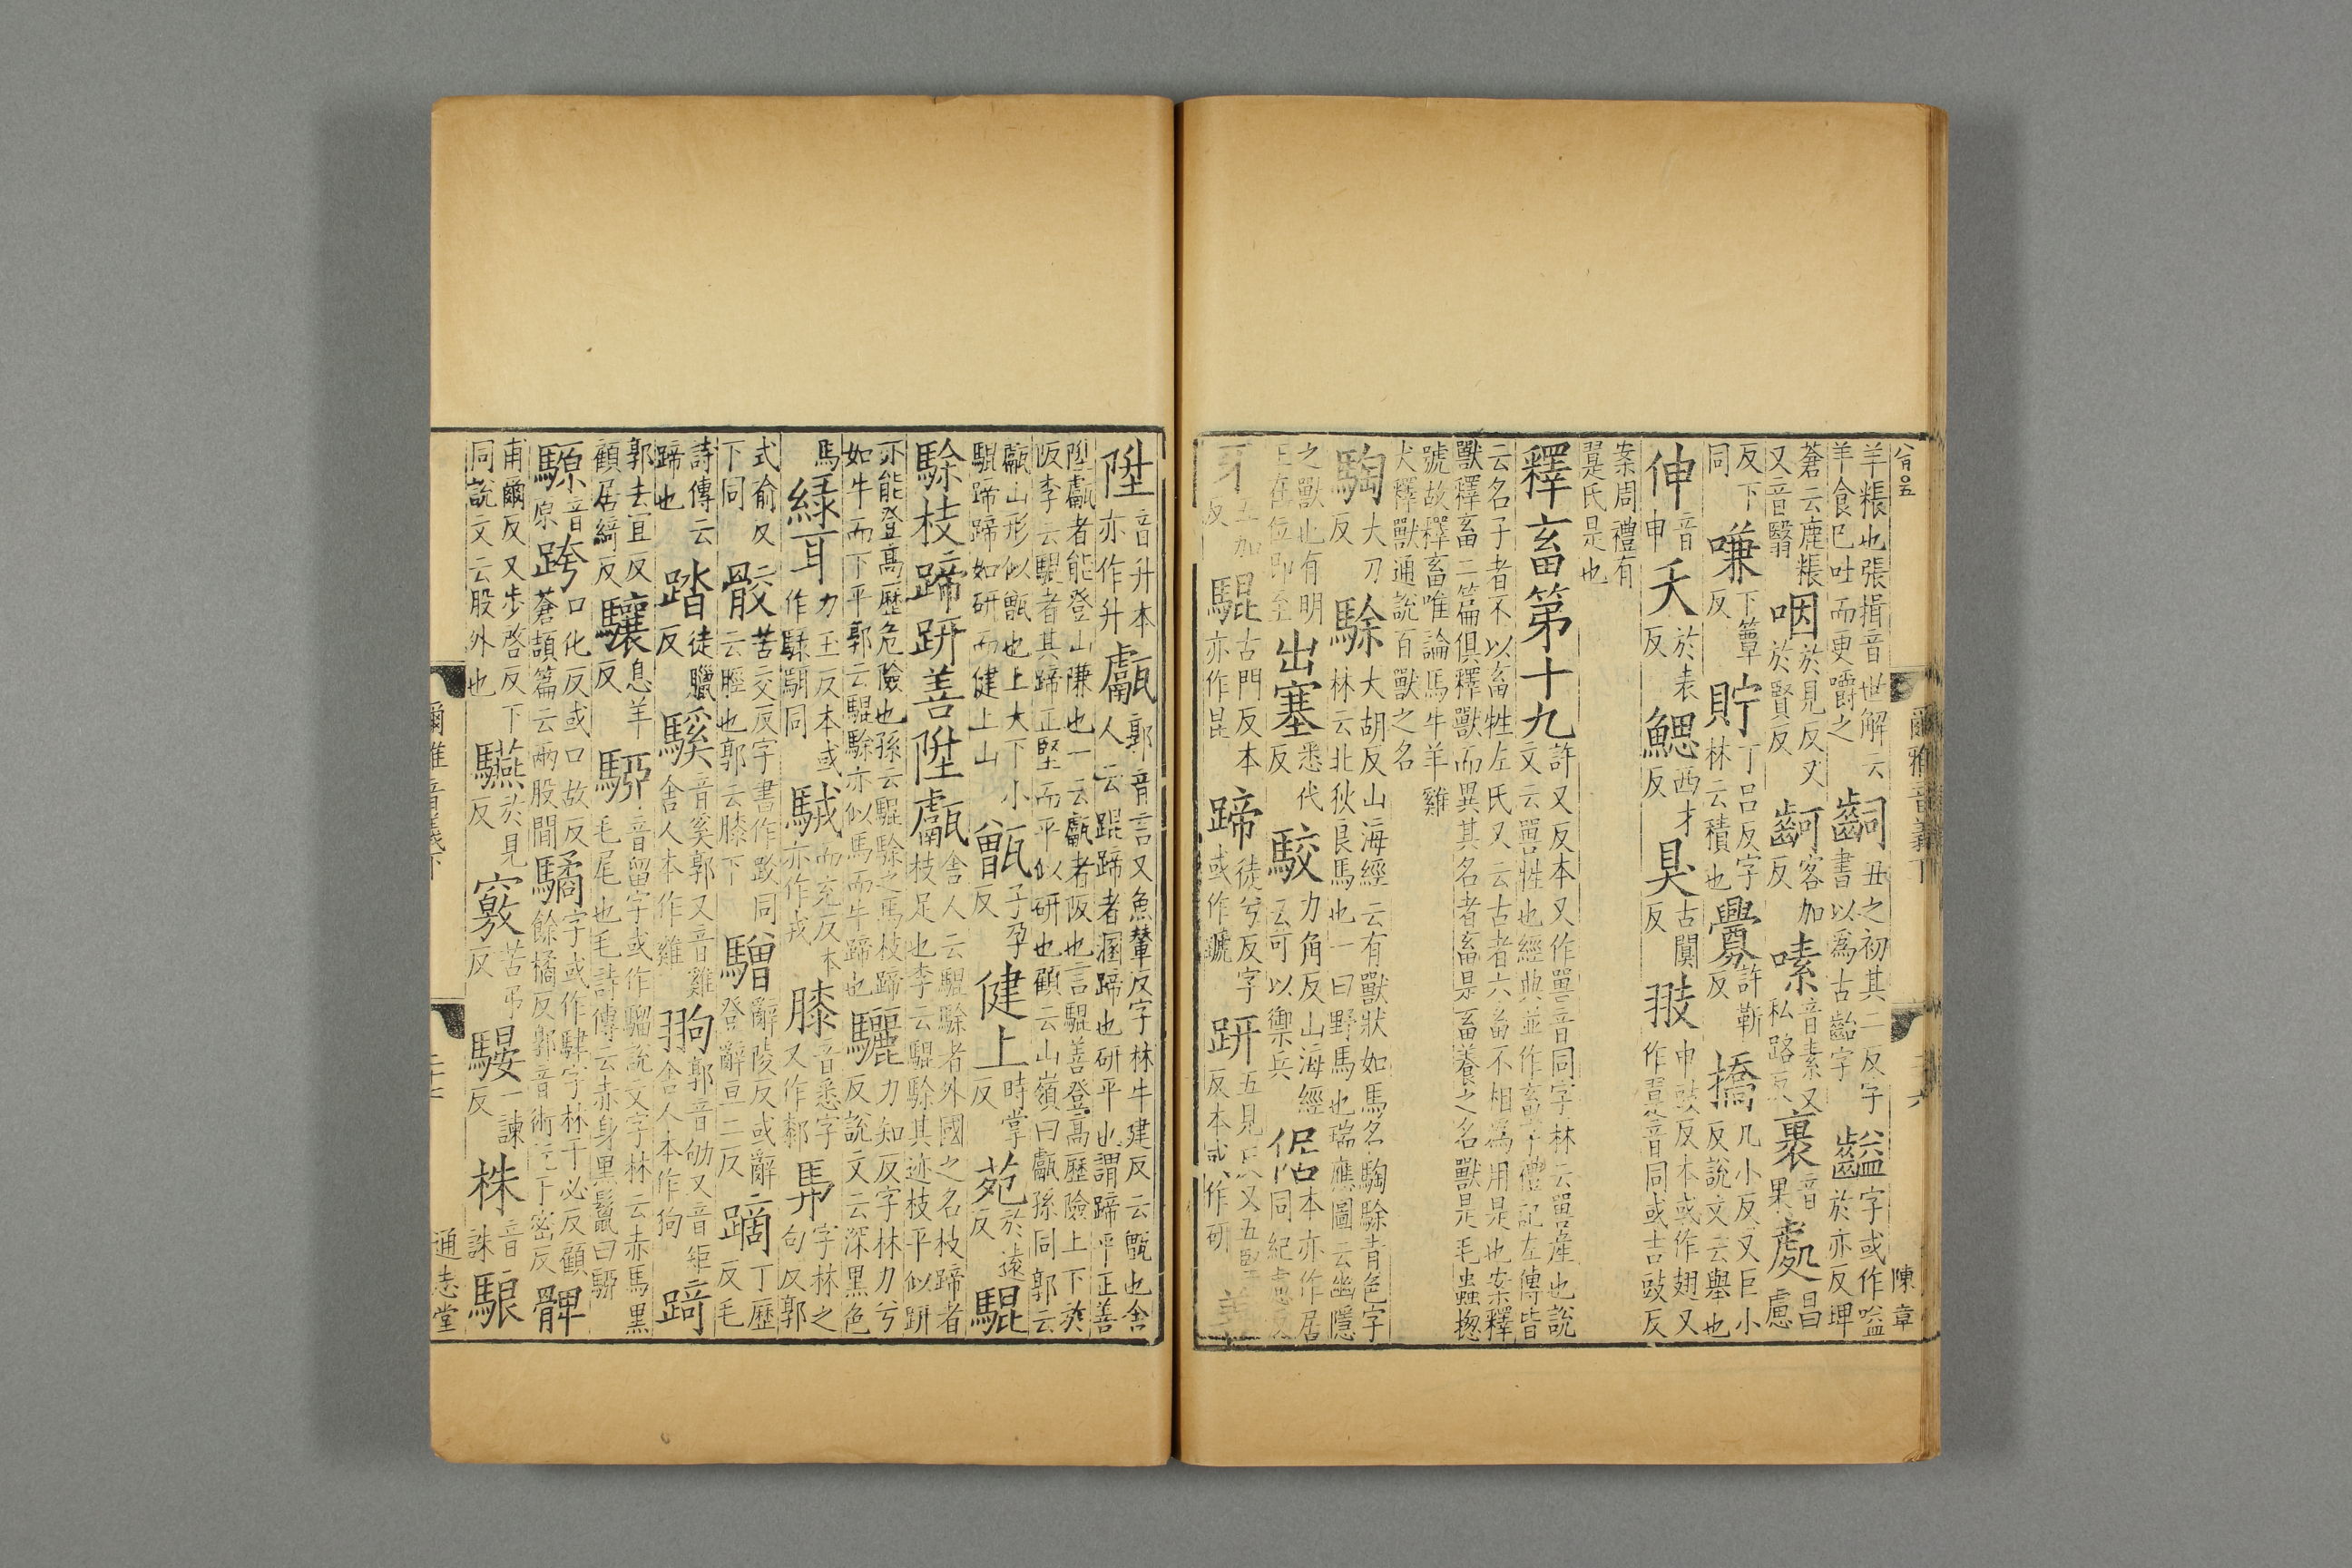 羊粻也張揖音世解云齝丑之初其二反字書以爲古齝字齸字或作嗌於亦反埤
羊食已吐而更嚼之
蒼云鹿粻咽於見反又於賢反齖客加反嗉音素又私路反裹音果處昌慮
又音翳
反下同嗛下簟反貯丁呂反字林云積也釁許靳反撟几小反又巨小反說文云舉也
伸音申夭於表反鰓西才反狊古闃反翄申豉反本或作翅又作翨音同或吉豉反
案周禮有翨氏是也
釋畜第十九許又反本又作嘼音同字林云嘼產也說文云嘼牲也經典並作畜字禮記左傳皆
云名子者不以畜牲左氏又云古者六畜不相爲用是也案釋
獸釋畜二篇俱釋獸而異其名者畜是畜養之名獸是毛蟲揔
號故釋畜唯論馬牛羊雞
犬釋獸通說百獸之名
騊大刀反駼大胡反山海經云有獸狀如馬名騊駼青色字林云北狄良馬也一曰野馬也瑞應圖云幽隱
之獸也有明王在位即至出塞悉代反駮力角反山海經云可以禦兵倨本亦作居同紀慮反
牙五加反騉古門反本亦作昆蹄徒兮反字或作蹏趼五見反又五堅反本或作研善
陞音升本亦作升甗郭音言又魚輦反字林牛建反云甑也舍人云騉蹄者溷蹄也研平也謂蹄平正善
陞甗者能登山隒也一云甗者阪也言騉善登高歷險上下於
阪李云騉者其蹄正堅而平似研也顧云山嶺曰甗孫同郭云
甗山形似甑也上大下小甑子孕反健上時掌反苑於遠反騉
騉蹄蹄如研而健上山
駼枝蹄趼善陞甗舍人云騉駼者外國之名枝蹄者枝足也李云騉駼其迹枝平似趼
亦能登高歷危險也孫云騉駼之馬枝蹄驪力知反字林力兮反說文云深黑色
如牛而下平郭云騉駼亦似馬而牛蹄也
馬綠耳力玉反本或作騄駬同駥而充反本亦作戎膝音悉字又作厀馵字林之句反郭
式喻反下同骹苦交反字書作跤同云脛也郭云膝下驓辭陵反或辭登辭亘二反蹢丁歷反毛
詩傳云蹄也踏徒臘反騱音奚郭又音雞舍人本作雞翑郭音劬又音矩舍人本作狗踦
郭去宜反顧居綺反驤息羊反騮音留字或作駵說文字林云赤馬黑毛尾也毛詩傳云赤身黑鬣曰騮
騵音原跨口化反或口故反蒼頡篇云兩股間驈字或作驈字林于必反顧餘橘反郭音術一云于密反髀
甫爾反又步啓反下同說文云股外也驠於見反竅苦弔反騴一諫反株音誅駺
爾雅音義下
通志堂
陳章